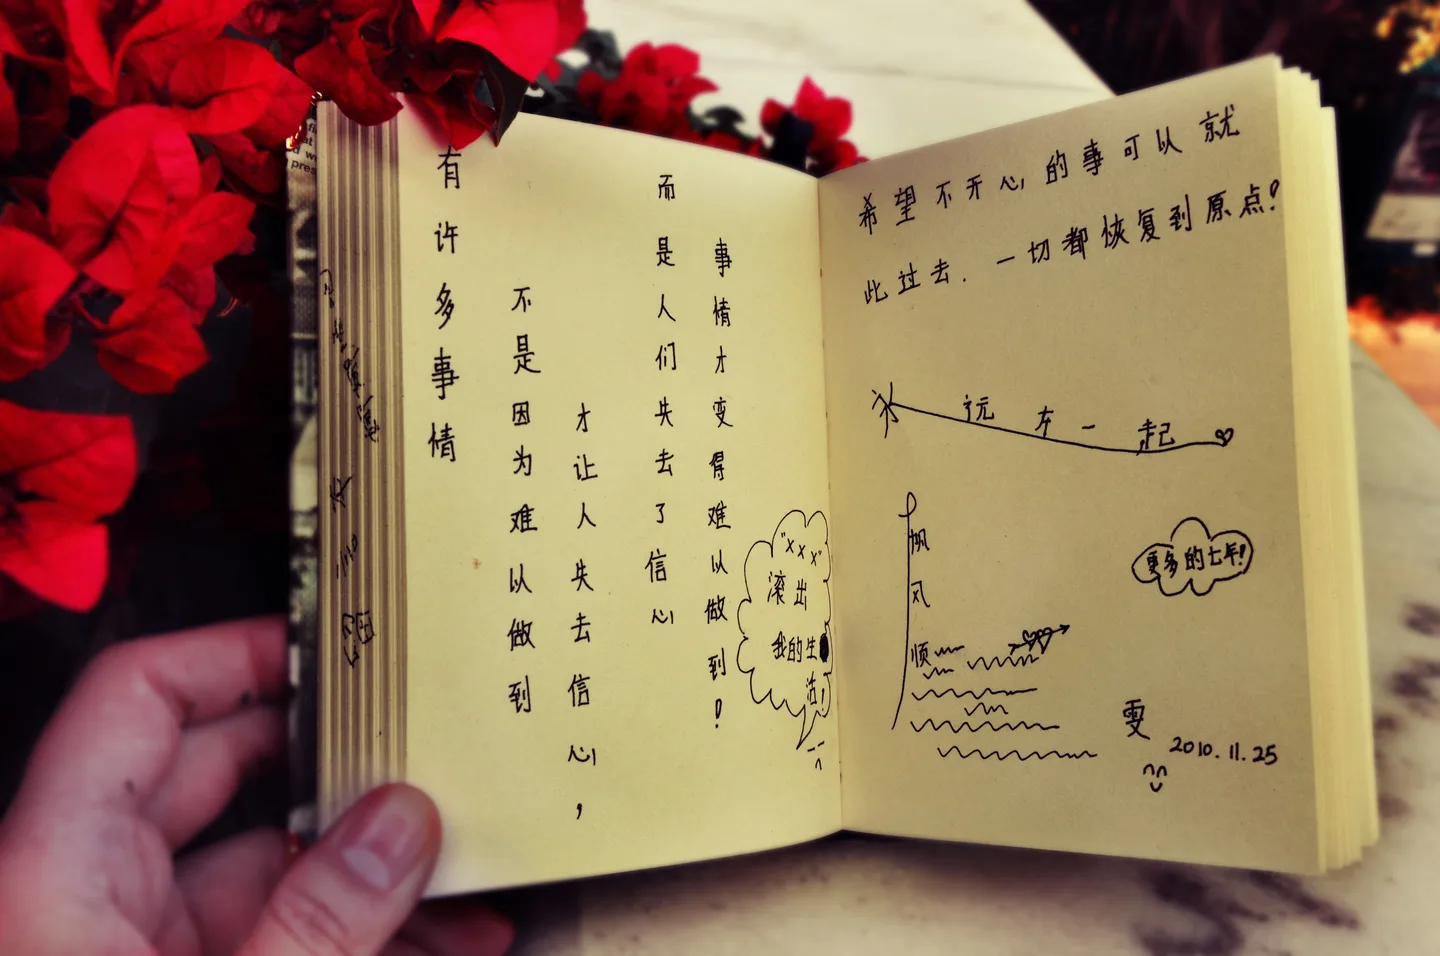 有许多事情
不是因为难以做到
才让人失去信心,
而是人们失去了信心
事情才变得难以做到!
"×××"
滚出
我的生
活!
希望不开心的事可以就
此过去.一切都恢复到原点!
永远在一起
帆风顺
更多的七年!
雯
2010.11.25